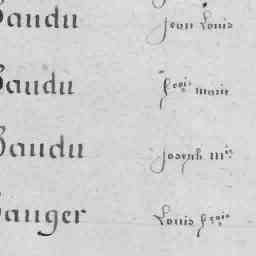 Baudu Jean Louis
Baudu fçois marie
Baudu Joseph Mie
Bauger Louis fçois